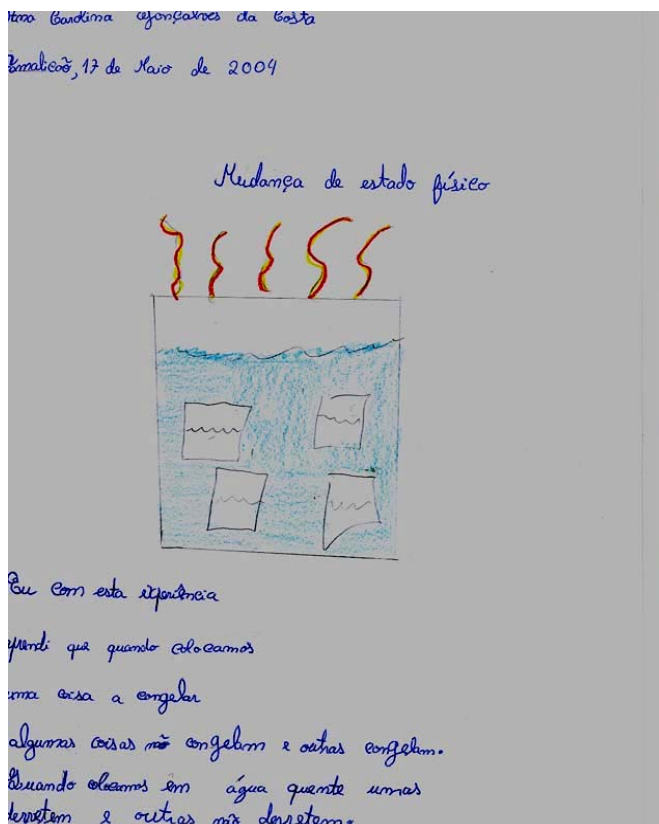 Carolina Gonçalves da Costa
17 de Maio de 2004
Mudança de estado físico
Eu com esta experiência
aprendi que quando colocamos
uma coisa a congelar
algumas coisas não congelam e outras congelam.
Quando colocamos em água quente umas
derretem e outras não derretem.